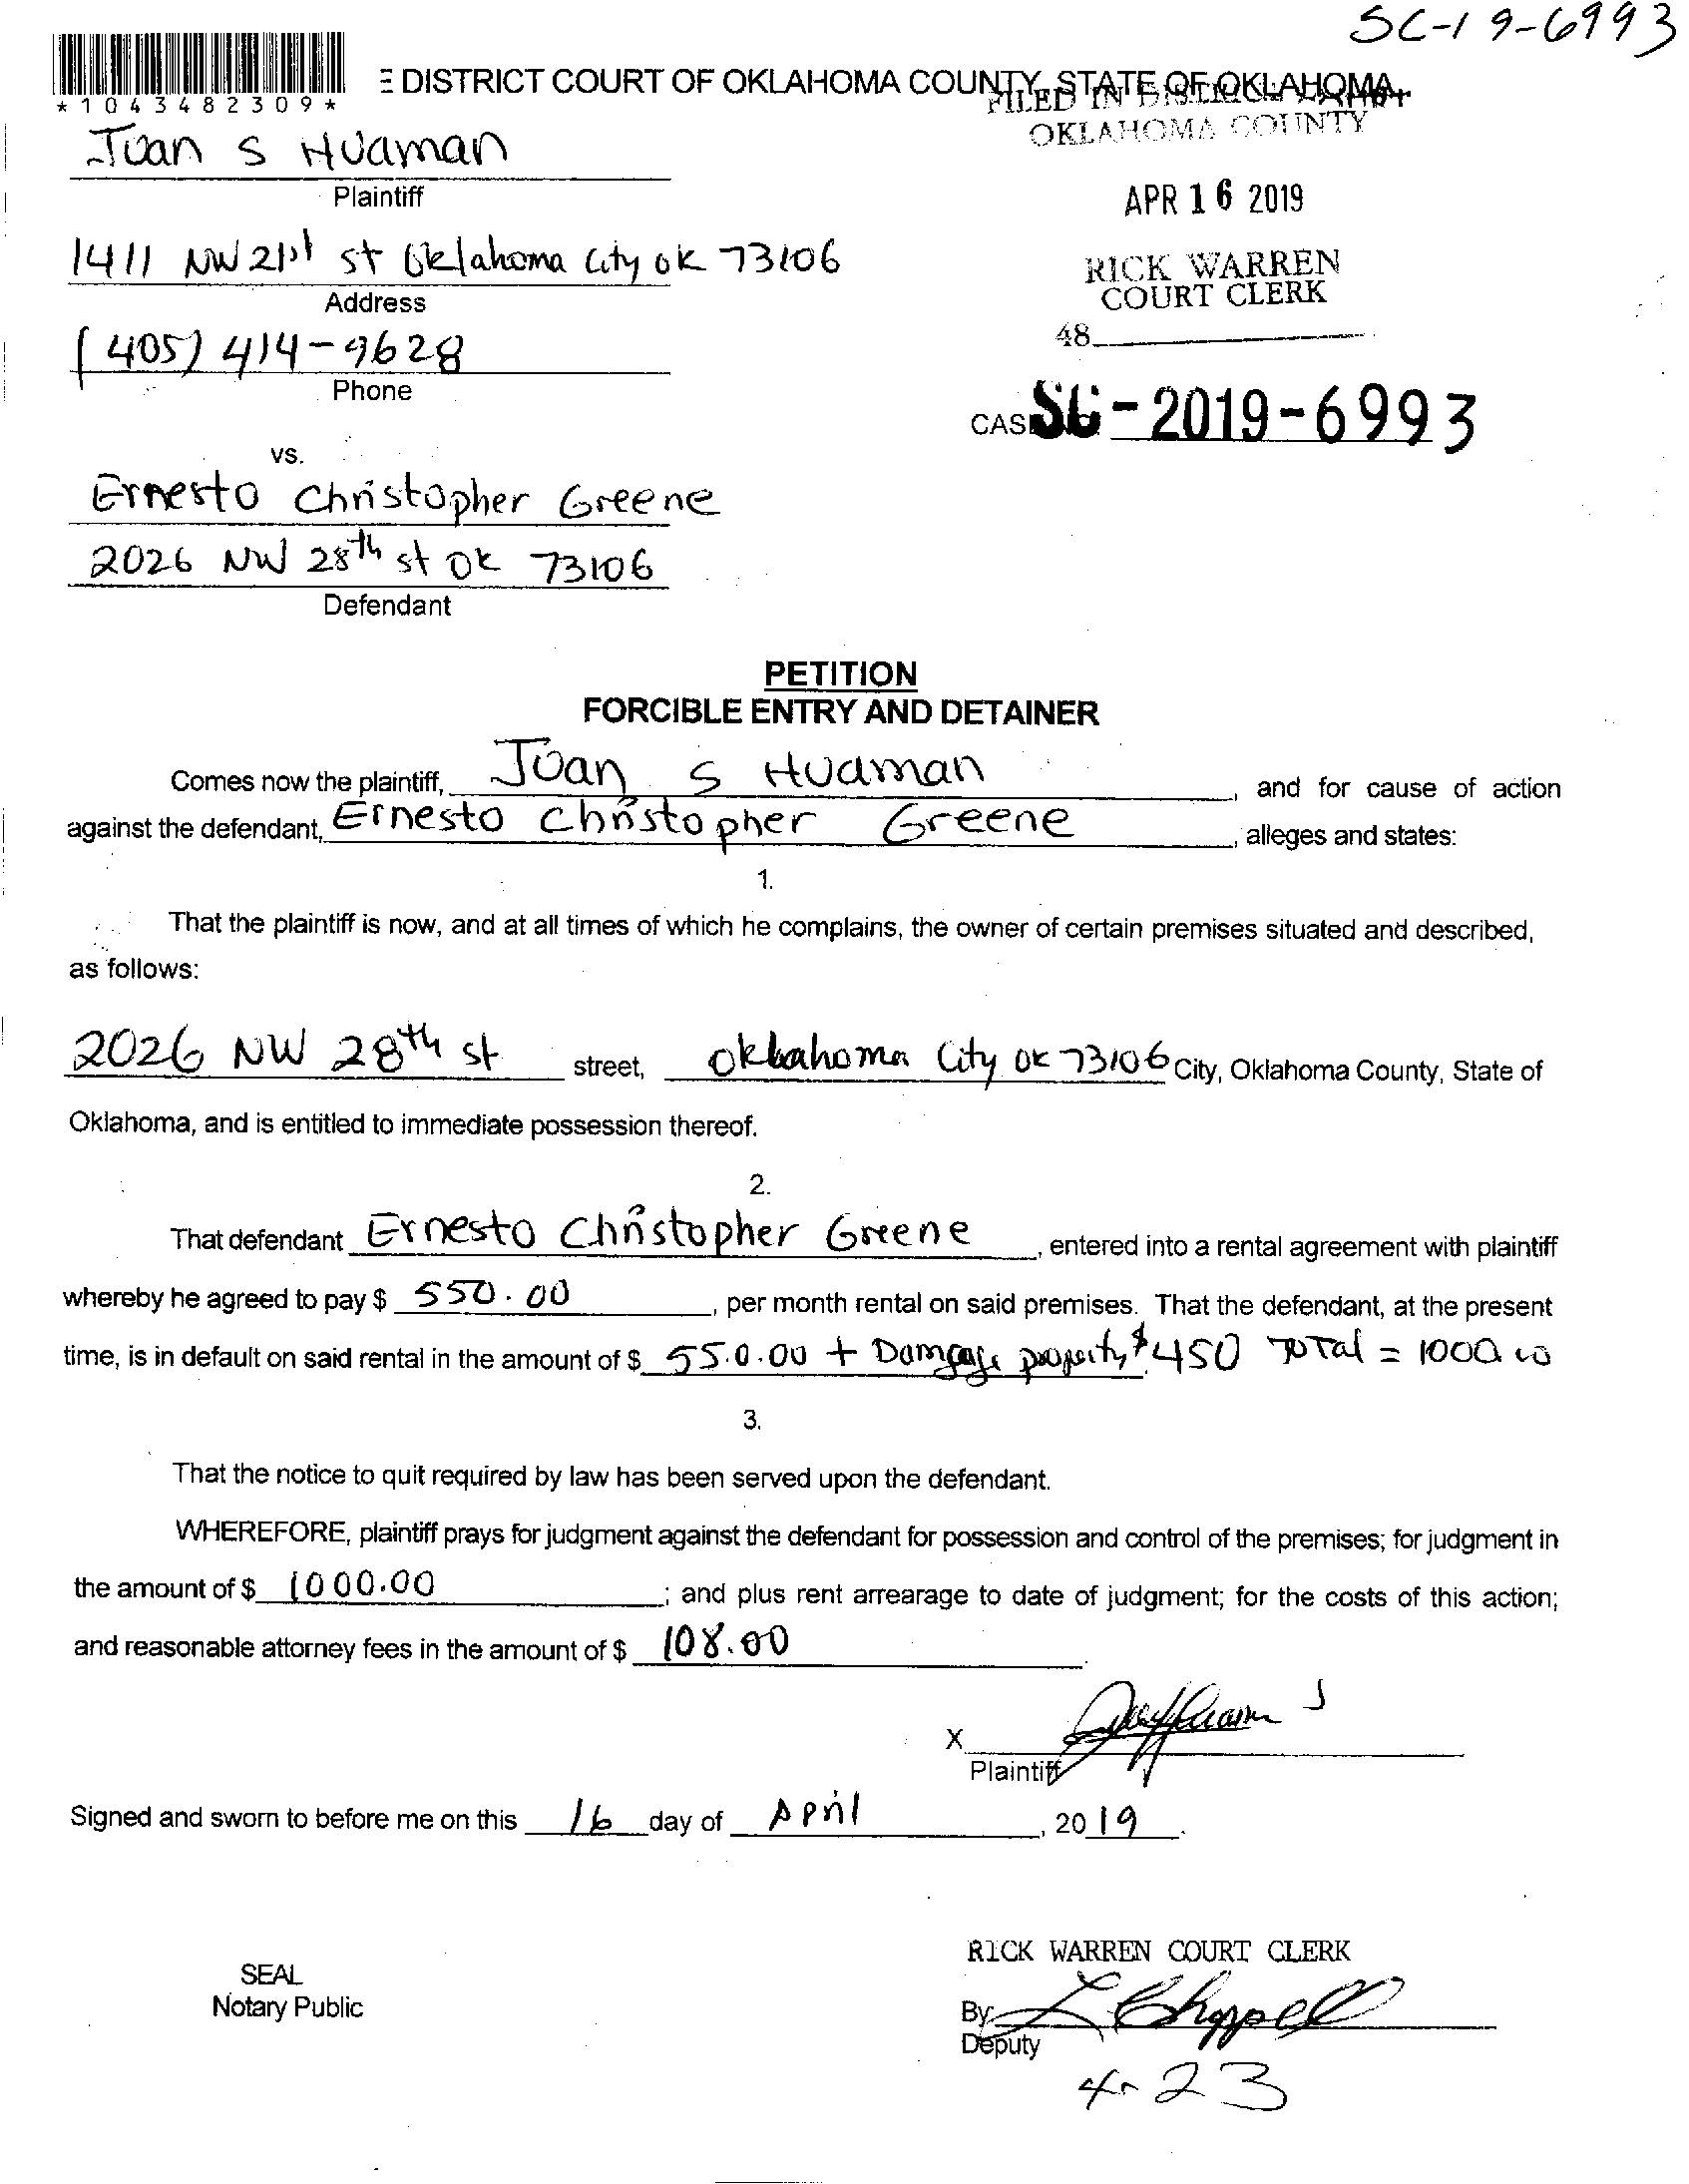 SC-19-6993
*1043482309*
E DISTRICT COURT OF OKLAHOMA COUNTY, STATE OF OKLAHOMA
FILED IN DISTRICT COURT
OKLAHOMA COUNTY
Juan S Huaman
Plaintiff
APR 16 2019
1411 NW 21st st Oklahoma City ok 73106
Address
RICK WARREN
COURT CLERK
48
(405) 414-9628
Phone
CAS SC-2019-6993
vs.
Ernesto Christopher Greene
2026 NW 28th st OK 73106
Defendant
PETITION
FORCIBLE ENTRY AND DETAINER
Comes now the plaintiff, Juan S Huaman, and for cause of action
against the defendant, Ernesto Christopher Greene, alleges and states:
1.
That the plaintiff is now, and at all times of which he complains, the owner of certain premises situated and described,
as follows:
2026 NW 28th st street, Oklahoma City OK 73106 City, Oklahoma County, State of
Oklahoma, and is entitled to immediate possession thereof.
2.
That defendant Ernesto Christopher Greene, entered into a rental agreement with plaintiff
whereby he agreed to pay $ 550.00, per month rental on said premises. That the defendant, at the present
time, is in default on said rental in the amount of $ 550.00 + Damage property $450 Total = 1000.00
3.
That the notice to quit required by law has been served upon the defendant.
WHEREFORE, plaintiff prays for judgment against the defendant for possession and control of the premises; for judgment in
the amount of $ 1000.00; and plus rent arrearage to date of judgment; for the costs of this action;
and reasonable attorney fees in the amount of $ 108.00.
X
Plaintiff
Signed and sworn to before me on this 16 day of April, 2019.
RICK WARREN COURT CLERK
SEAL
Notary Public
By L Chappell
Deputy
4-23